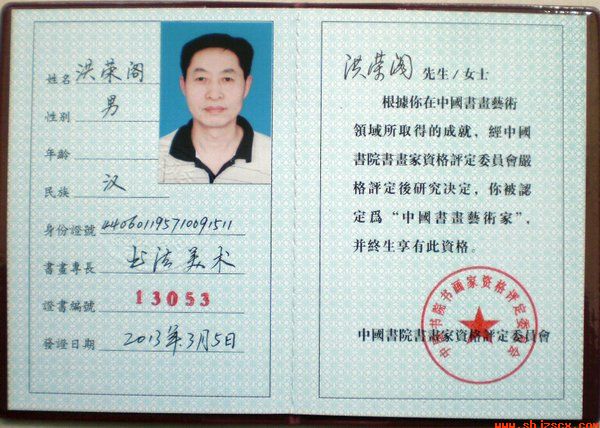 姓名 洪荣阁
性别 男
年齡
民族 汉
身份證號
書畫專長 书法美术
證書編號 13053
發證日期 2013年3月5日
洪荣阁 先生/女士
根據你在中國書畫藝術
領域所取得的成就，經中國
書院書畫家資格評定委員會嚴
格評定後研究決定，你被認
定爲“中國書畫藝術家”，
并終生享有此資格。
中国书院书画家资格评定委员会
中國書院書畫家資格評定委員會
www.shjzscx.com